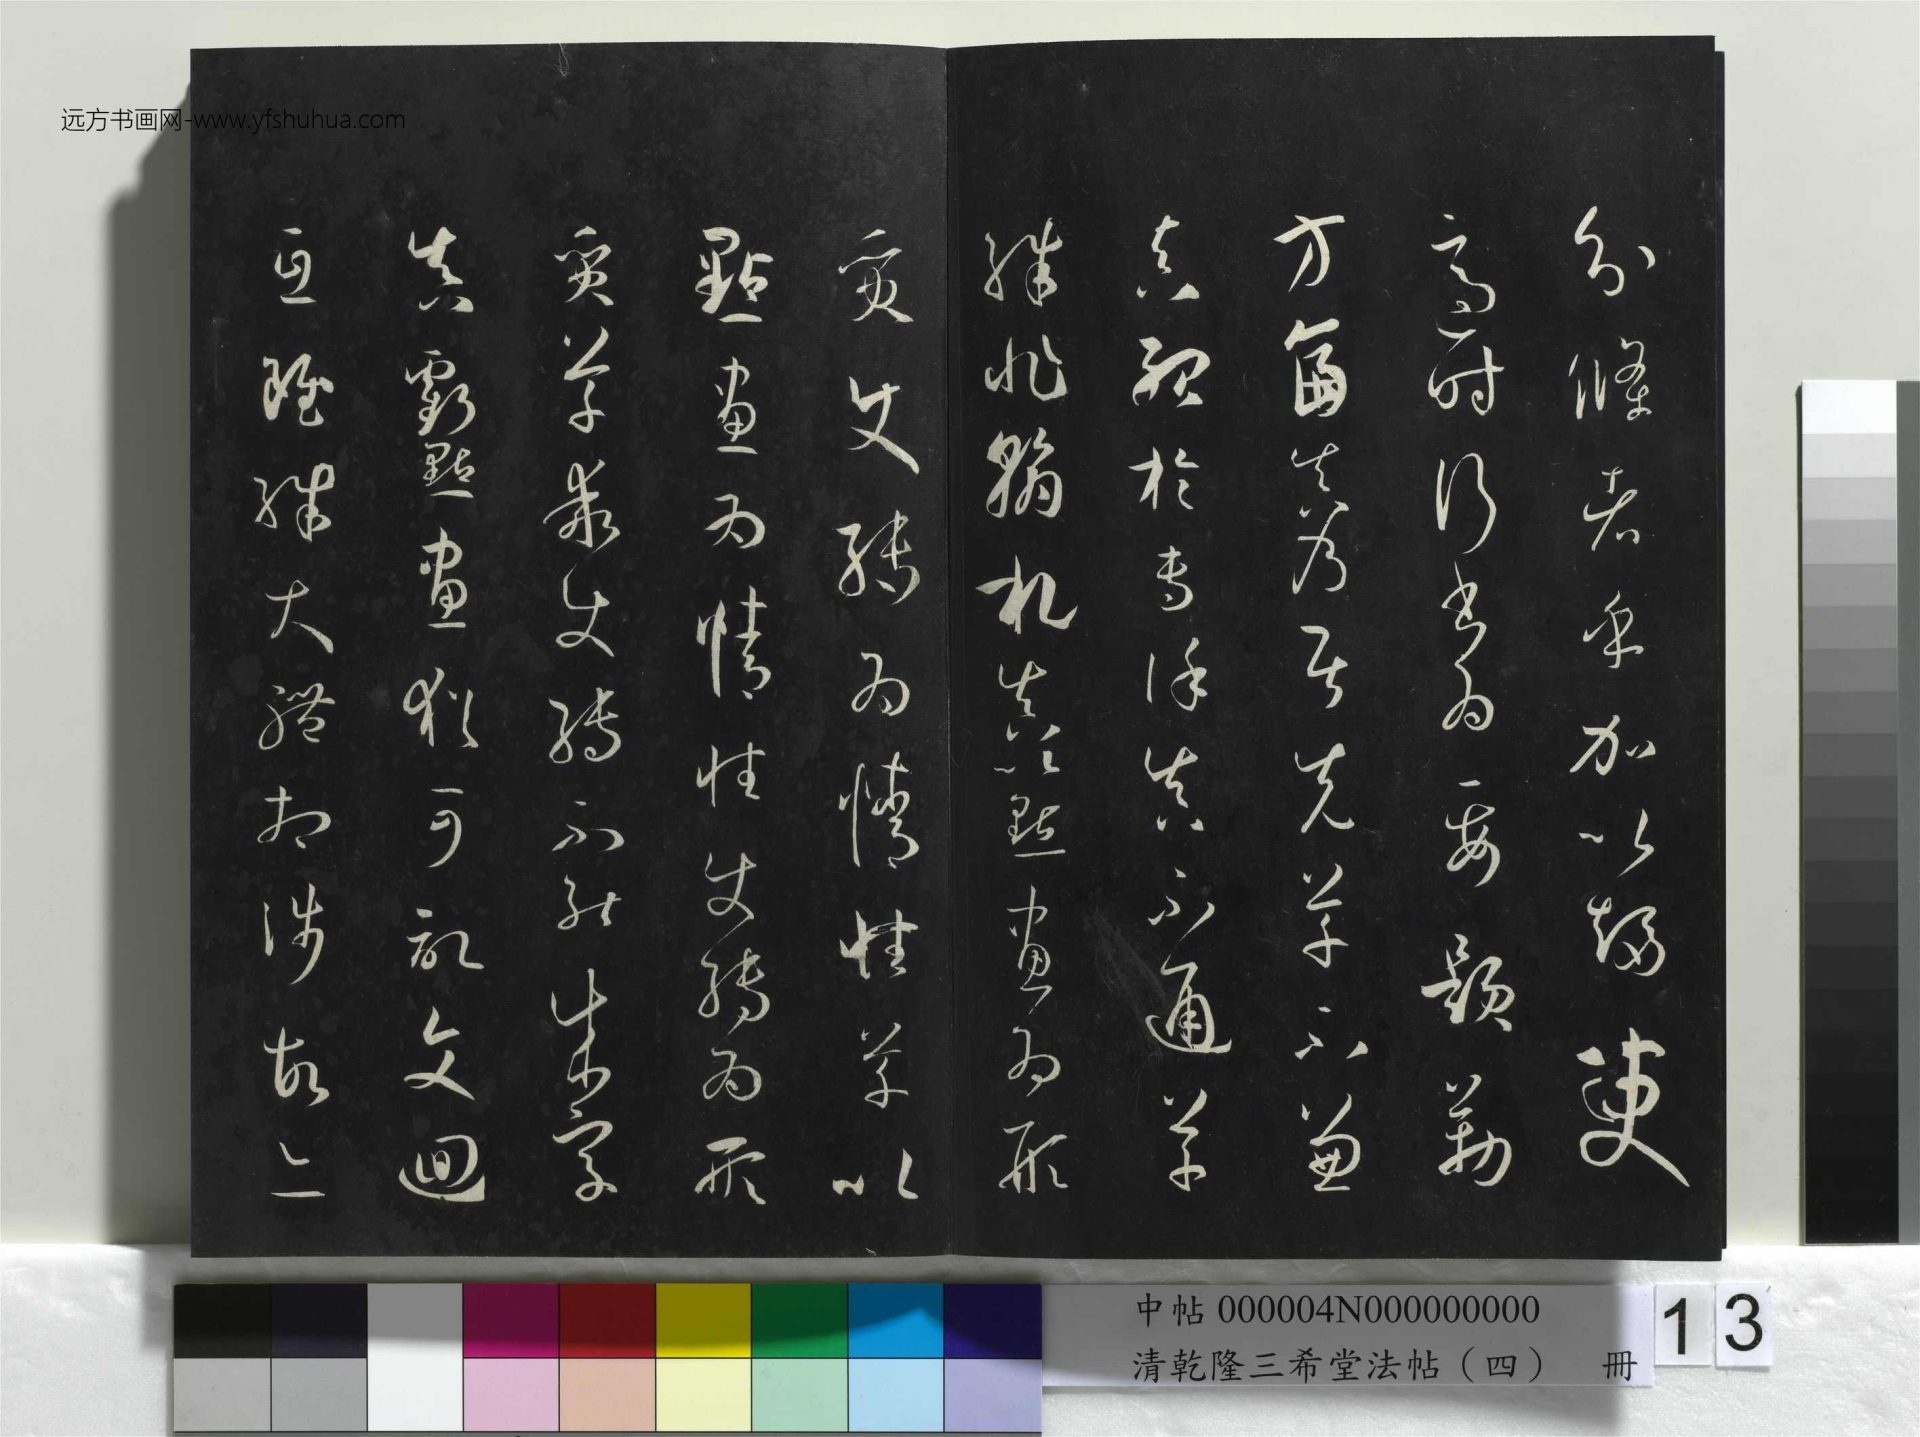 远方书画网-www.yfshuhua.com
分條者乎加以趨變
適時行書為要題勒
方畐真乃居先草不兼
真殆於專謹真不通草
殊非翰札真以點畫為形
質使轉為情性草以
點畫為情性使轉為形
質草乖使轉不能成字
真虧點畫猶可記文迴
互雖殊大體相涉故亦
中帖 000004N000000000
清乾隆三希堂法帖（四） 冊
13